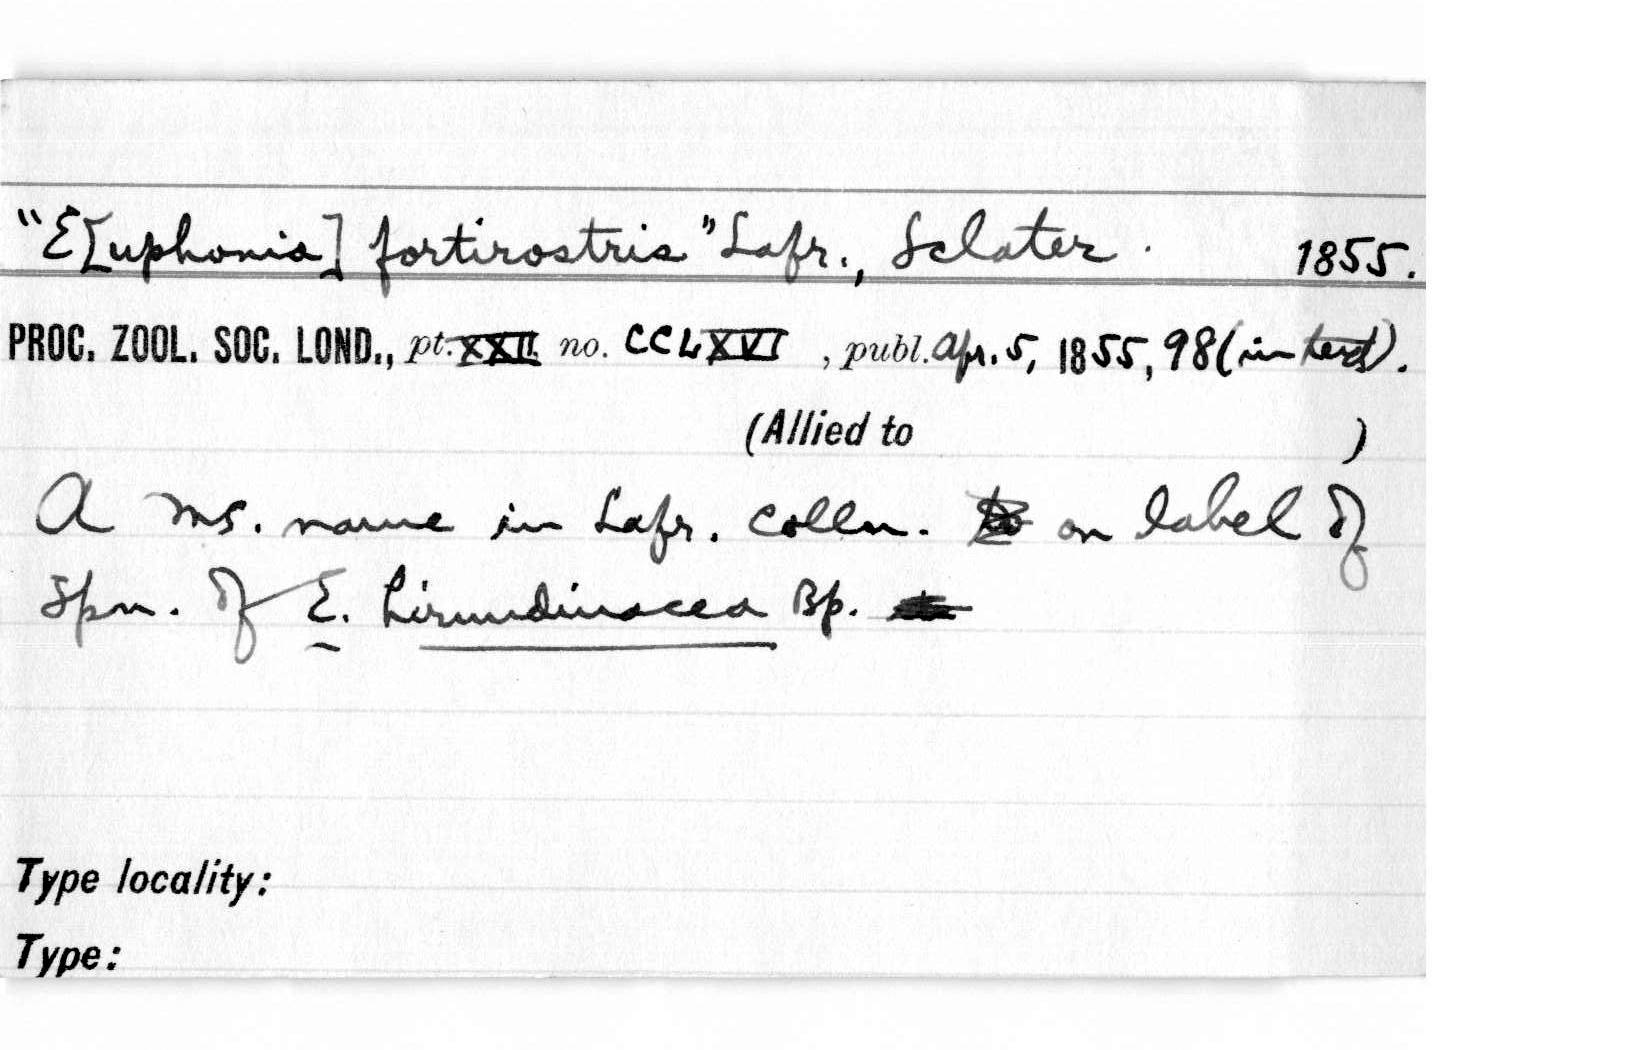 "E[uphonia] fortirostris" Lafr., Sclater. 1855.
PROC. ZOOL. SOC. LOND., pt. XXII no. CCLXVI, publ. Apr. 5, 1855, 98 (in text).
(Allied to )
A ms. name in Lafr. colln. on label of
spn. of E. hirundinacea Bp.
Type locality:
Type: